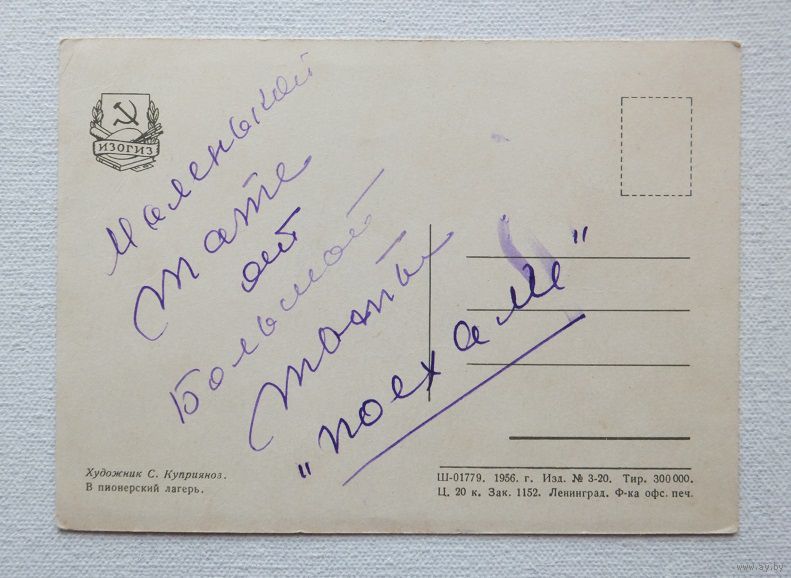 ИЗОГИЗ
Маленькой
Тате
от
Большой
Таты
„поехали"
Художник С. Куприяноз.
В пионерский лагерь.
Ш-01779. 1956. г. Изд. № 3-20. Тир. 300 000.
Ц. 20 к. Зак. 1152. Ленинград. Ф-ка офс. печ.
www.ay.by